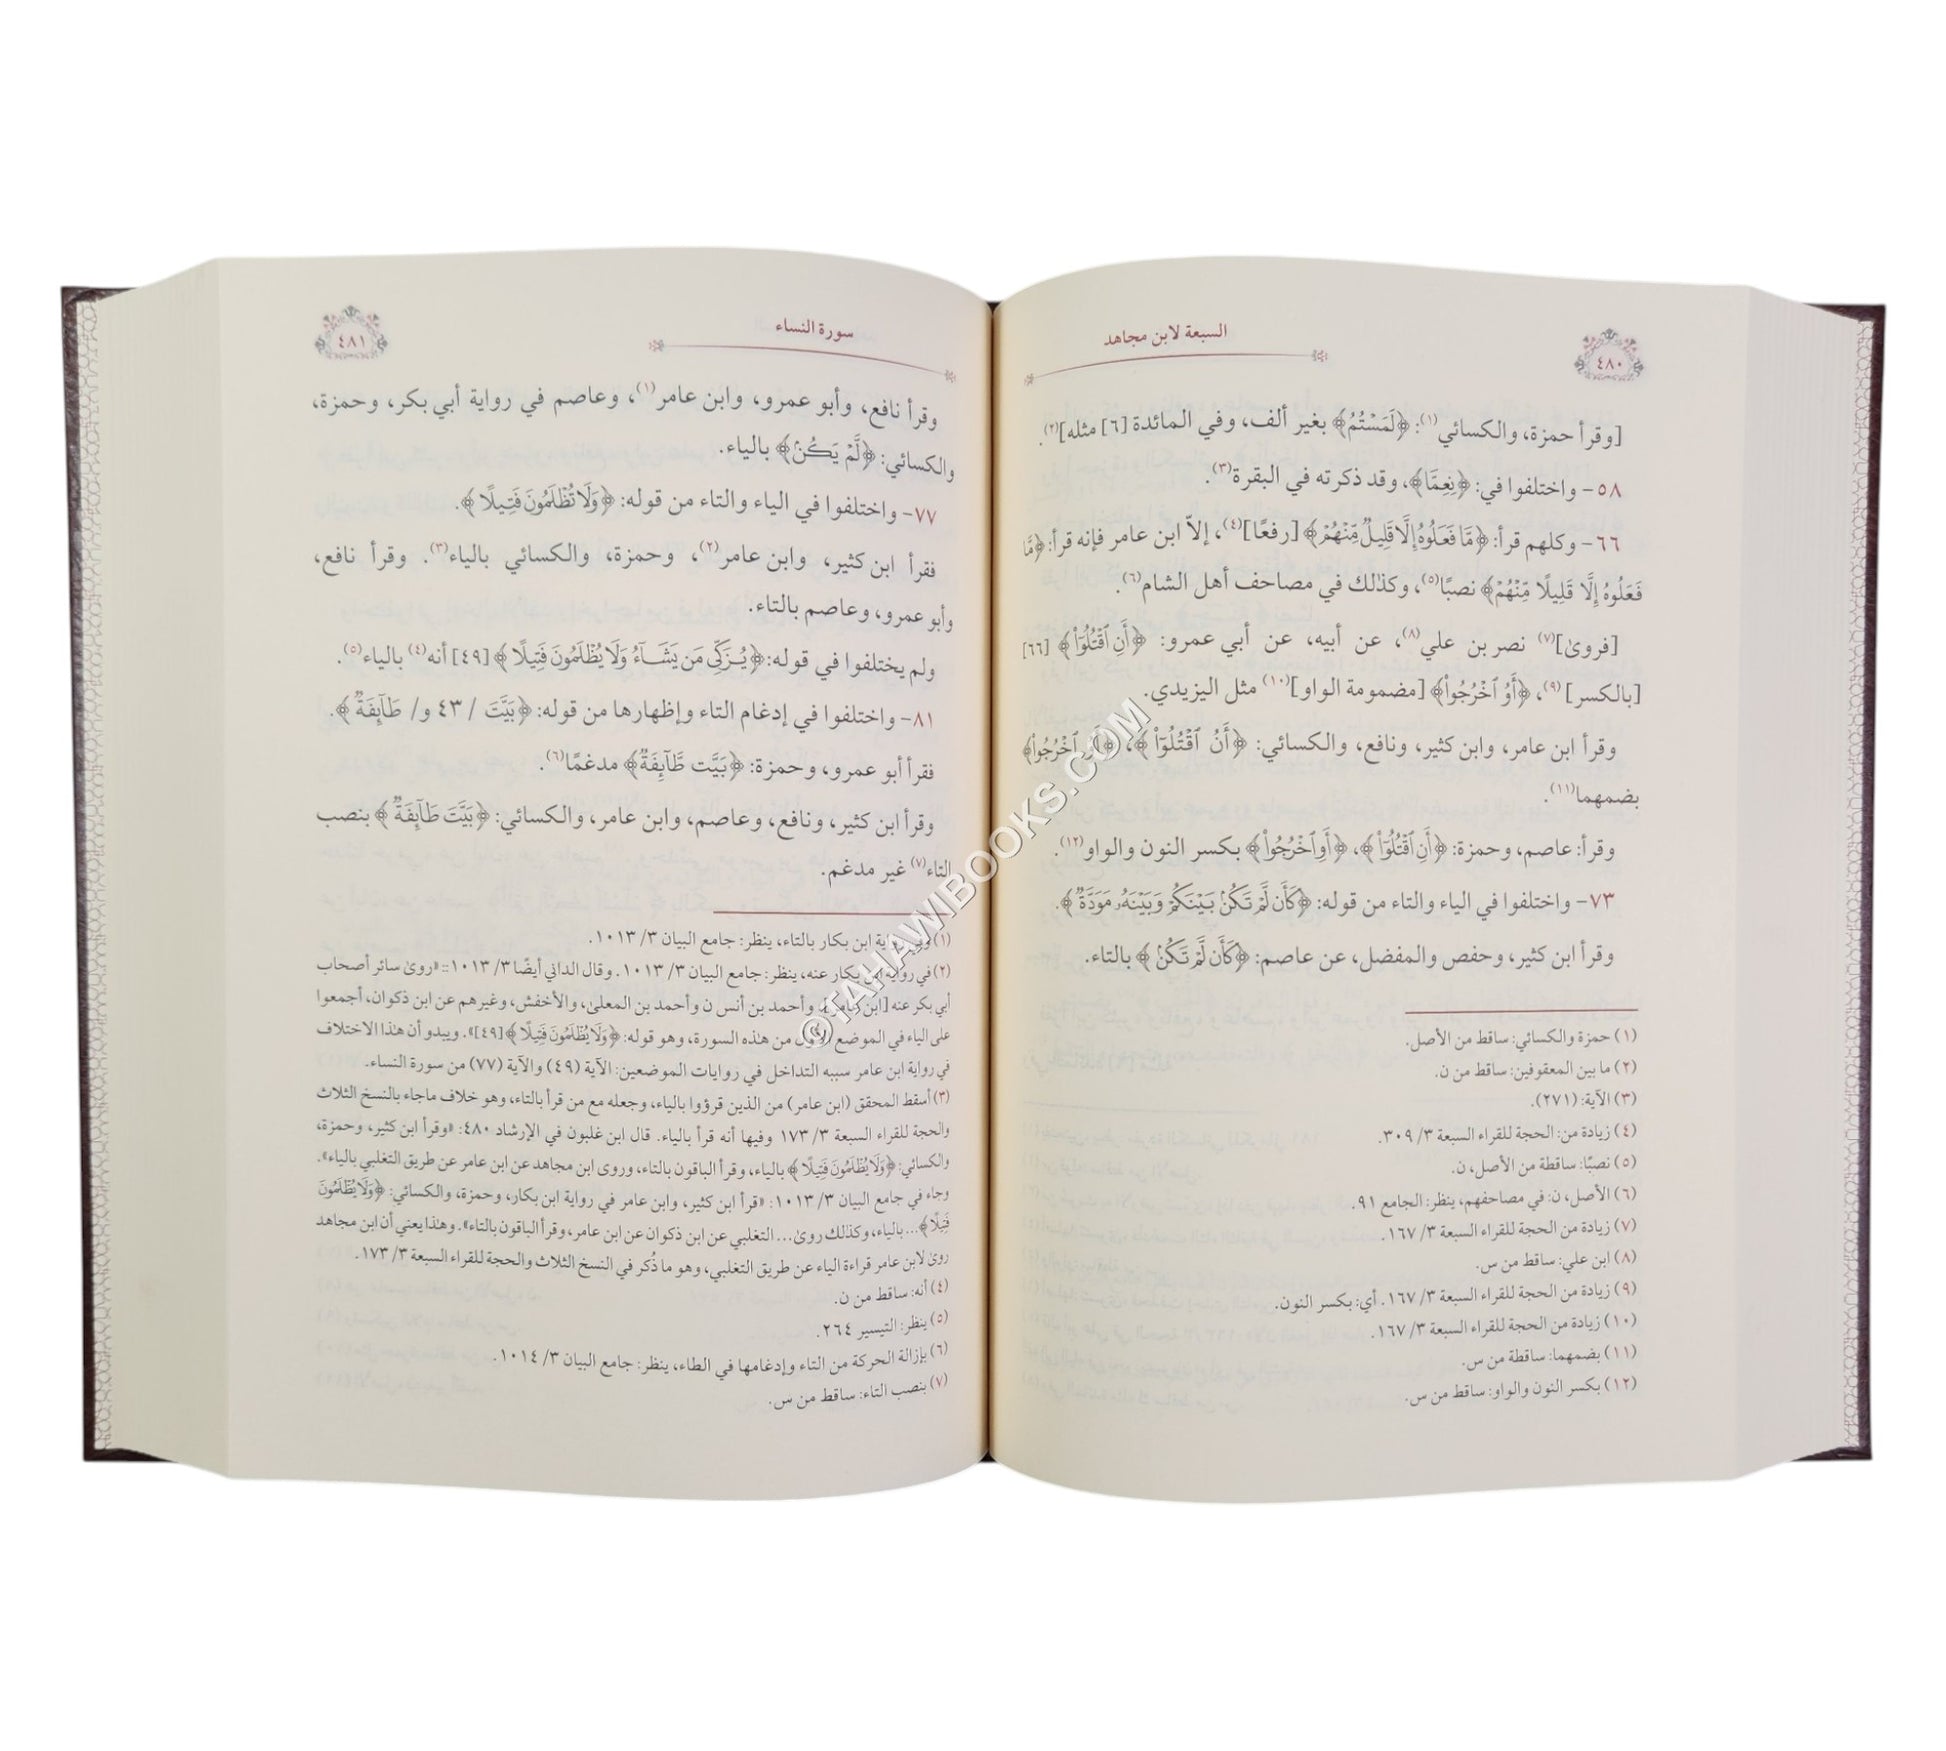 السبعة لابن مجاهد
٤٨٠
[وقرأ حمزة، والكسائي(١): ﴿لَمَسْتُمُ﴾ بغير ألف، وفي المائدة [٦] مثله](٢).
٥٨- واختلفوا في: ﴿نِعِمَّا﴾، وقد ذكرته في البقرة(٣).
٦٦- وكلهم قرأ: ﴿مَّا فَعَلُوهُ إِلَّا قَلِيلٌ مِّنْهُمْ﴾ [رفعًا](٤)، إلاّ ابن عامر فإنه قرأ: ﴿مَّا
فَعَلُوهُ إِلَّا قَلِيلًا مِّنْهُمْ﴾ نصبًا(٥)، وكذٰلك في مصاحف أهل الشام(٦).
[فروىٰ](٧) نصر بن علي(٨)، عن أبيه، عن أبي عمرو: ﴿أَنِ ٱقْتُلُوٓا۟﴾ [٦٦]
[بالكسر](٩)، ﴿أَوُ ٱخْرُجُوا۟﴾ [مضمومة الواو](١٠) مثل اليزيدي.
وقرأ ابن عامر، وابن كثير، ونافع، والكسائي: ﴿أَنُ ٱقْتُلُوٓا۟﴾، ﴿أَوُ ٱخْرُجُوا۟﴾
بضمهما(١١).
وقرأ: عاصم، وحمزة: ﴿أَنِ ٱقْتُلُوٓا۟﴾، ﴿أَوِ ٱخْرُجُوا۟﴾ بكسر النون والواو(١٢).
٧٣- واختلفوا في الياء والتاء من قوله: ﴿كَأَن لَّمْ تَكُنۢ بَيْنَكُمْ وَبَيْنَهُۥ مَوَدَّةٌ﴾.
وقرأ ابن كثير، وحفص والمفضل، عن عاصم: ﴿كَأَن لَّمْ تَكُنۢ﴾ بالتاء.
(١) حمزة والكسائي: ساقط من الأصل.
(٢) ما بين المعقوفين: ساقط من ن.
(٣) الآية: (٢٧١).
(٤) زيادة من: الحجة للقراء السبعة ٣/ ٣٠٩.
(٥) نصبًا: ساقطة من الأصل، ن.
(٦) الأصل، ن: في مصاحفهم، ينظر: الجامع ٩١.
(٧) زيادة من الحجة للقراء السبعة ٣/ ١٦٧.
(٨) ابن علي: ساقط من س.
(٩) زيادة من الحجة للقراء السبعة ٣/ ١٦٧. أي: بكسر النون.
(١٠) زيادة من الحجة للقراء السبعة ٣/ ١٦٧.
(١١) بضمهما: ساقطة من س.
(١٢) بكسر النون والواو: ساقط من س.
سورة النساء
٤٨١
وقرأ نافع، وأبو عمرو، وابن عامر(١)، وعاصم في رواية أبي بكر، وحمزة،
والكسائي: ﴿لَّمْ يَكُنۢ﴾ بالياء.
٧٧- واختلفوا في الياء والتاء من قوله: ﴿وَلَا تُظْلَمُونَ فَتِيلًا﴾.
فقرأ ابن كثير، وابن عامر(٢)، وحمزة، والكسائي بالياء(٣). وقرأ نافع،
وأبو عمرو، وعاصم بالتاء.
ولم يختلفوا في قوله: ﴿يُزَكِّى مَن يَشَآءُ وَلَا يُظْلَمُونَ فَتِيلًا﴾ [٤٩] أنه(٤) بالياء(٥).
٨١- واختلفوا في إدغام التاء وإظهارها من قوله: ﴿بَيَّتَ / ٤٣ و/ طَآئِفَةٌ﴾.
فقرأ أبو عمرو، وحمزة: ﴿بَيَّت طَّآئِفَةٌ﴾ مدغمًا(٦).
وقرأ ابن كثير، ونافع، وعاصم، وابن عامر، والكسائي: ﴿بَيَّتَ طَآئِفَةٌ﴾ بنصب
التاء(٧) غير مدغم.
(١) وفي رواية ابن بكار بالتاء، ينظر: جامع البيان ٣/ ١٠١٣.
(٢) في رواية ابن بكار عنه، ينظر: جامع البيان ٣/ ١٠١٣. وقال الداني أيضًا ٣/ ١٠١٣:: «روىٰ سائر أصحاب
أبي بكر عنه [ابن عامر]، وأحمد بن أنس ن وأحمد بن المعلىٰ، والأخفش، وغيرهم عن ابن ذكوان، أجمعوا
على الياء في الموضع الأول من هٰذه السورة، وهو قوله: ﴿وَلَا يُظْلَمُونَ فَتِيلًا﴾ [٤٩]». ويبدو أن هٰذا الاختلاف
في رواية ابن عامر سببه التداخل في روايات الموضعين: الآية (٤٩) والآية (٧٧) من سورة النساء.
(٣) أسقط المحقق (ابن عامر) من الذين قرؤوا بالياء، وجعله مع من قرأ بالتاء، وهو خلاف ماجاء بالنسخ الثلاث
والحجة للقراء السبعة ٣/ ١٧٣ وفيها أنه قرأ بالياء. قال ابن غلبون في الإرشاد ٤٨٠: «وقرأ ابن كثير، وحمزة،
والكسائي: ﴿وَلَا يُظْلَمُونَ فَتِيلًا﴾ بالياء، وقرأ الباقون بالتاء، وروى ابن مجاهد عن ابن عامر عن طريق التغلبي بالياء».
وجاء في جامع البيان ٣/ ١٠١٣: «قرأ ابن كثير، وابن عامر في رواية ابن بكار، وحمزة، والكسائي: ﴿وَلَا يُظْلَمُونَ
فَتِيلًا﴾... بالياء، وكذلك روىٰ... التغلبي عن ابن ذكوان عن ابن عامر، وقرأ الباقون بالتاء». وهٰذا يعني أن ابن مجاهد
روىٰ لابن عامر قراءة الياء عن طريق التغلبي، وهو ما ذُكر في النسخ الثلاث والحجة للقراء السبعة ٣/ ١٧٣.
(٤) أنه: ساقط من ن.
(٥) ينظر: التيسير ٢٦٤.
(٦) بإزالة الحركة من التاء وإدغامها في الطاء، ينظر: جامع البيان ٣/ ١٠١٤.
(٧) بنصب التاء: ساقط من س.
©TAHAWIBOOKS.COM